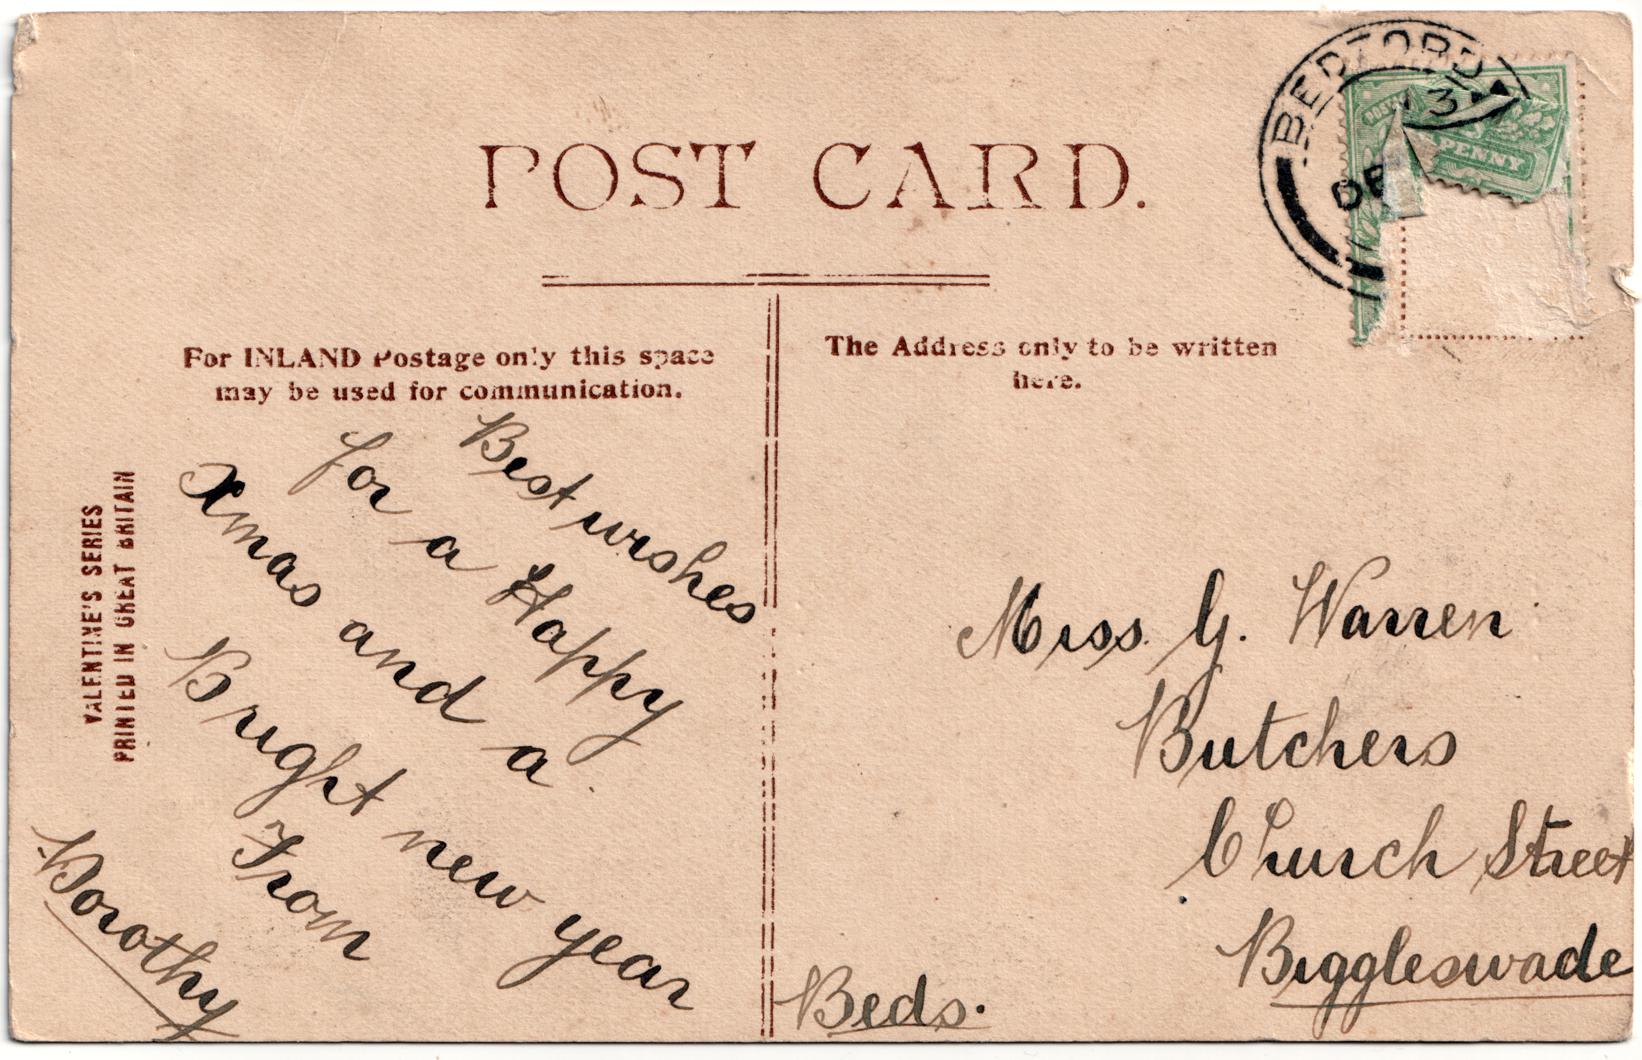 POST CARD.
For INLAND Postage only this space
may be used for communication.
The Address only to be written
here.
VALENTINE'S SERIES
PRINTED IN GREAT BRITAIN
Best wishes
for a Happy
Xmas and a
Bright new year
From
Dorothy
Miss. G. Warren
Butchers
Church Street
Biggleswade
Beds.
BEDFORD
DE
PENNY